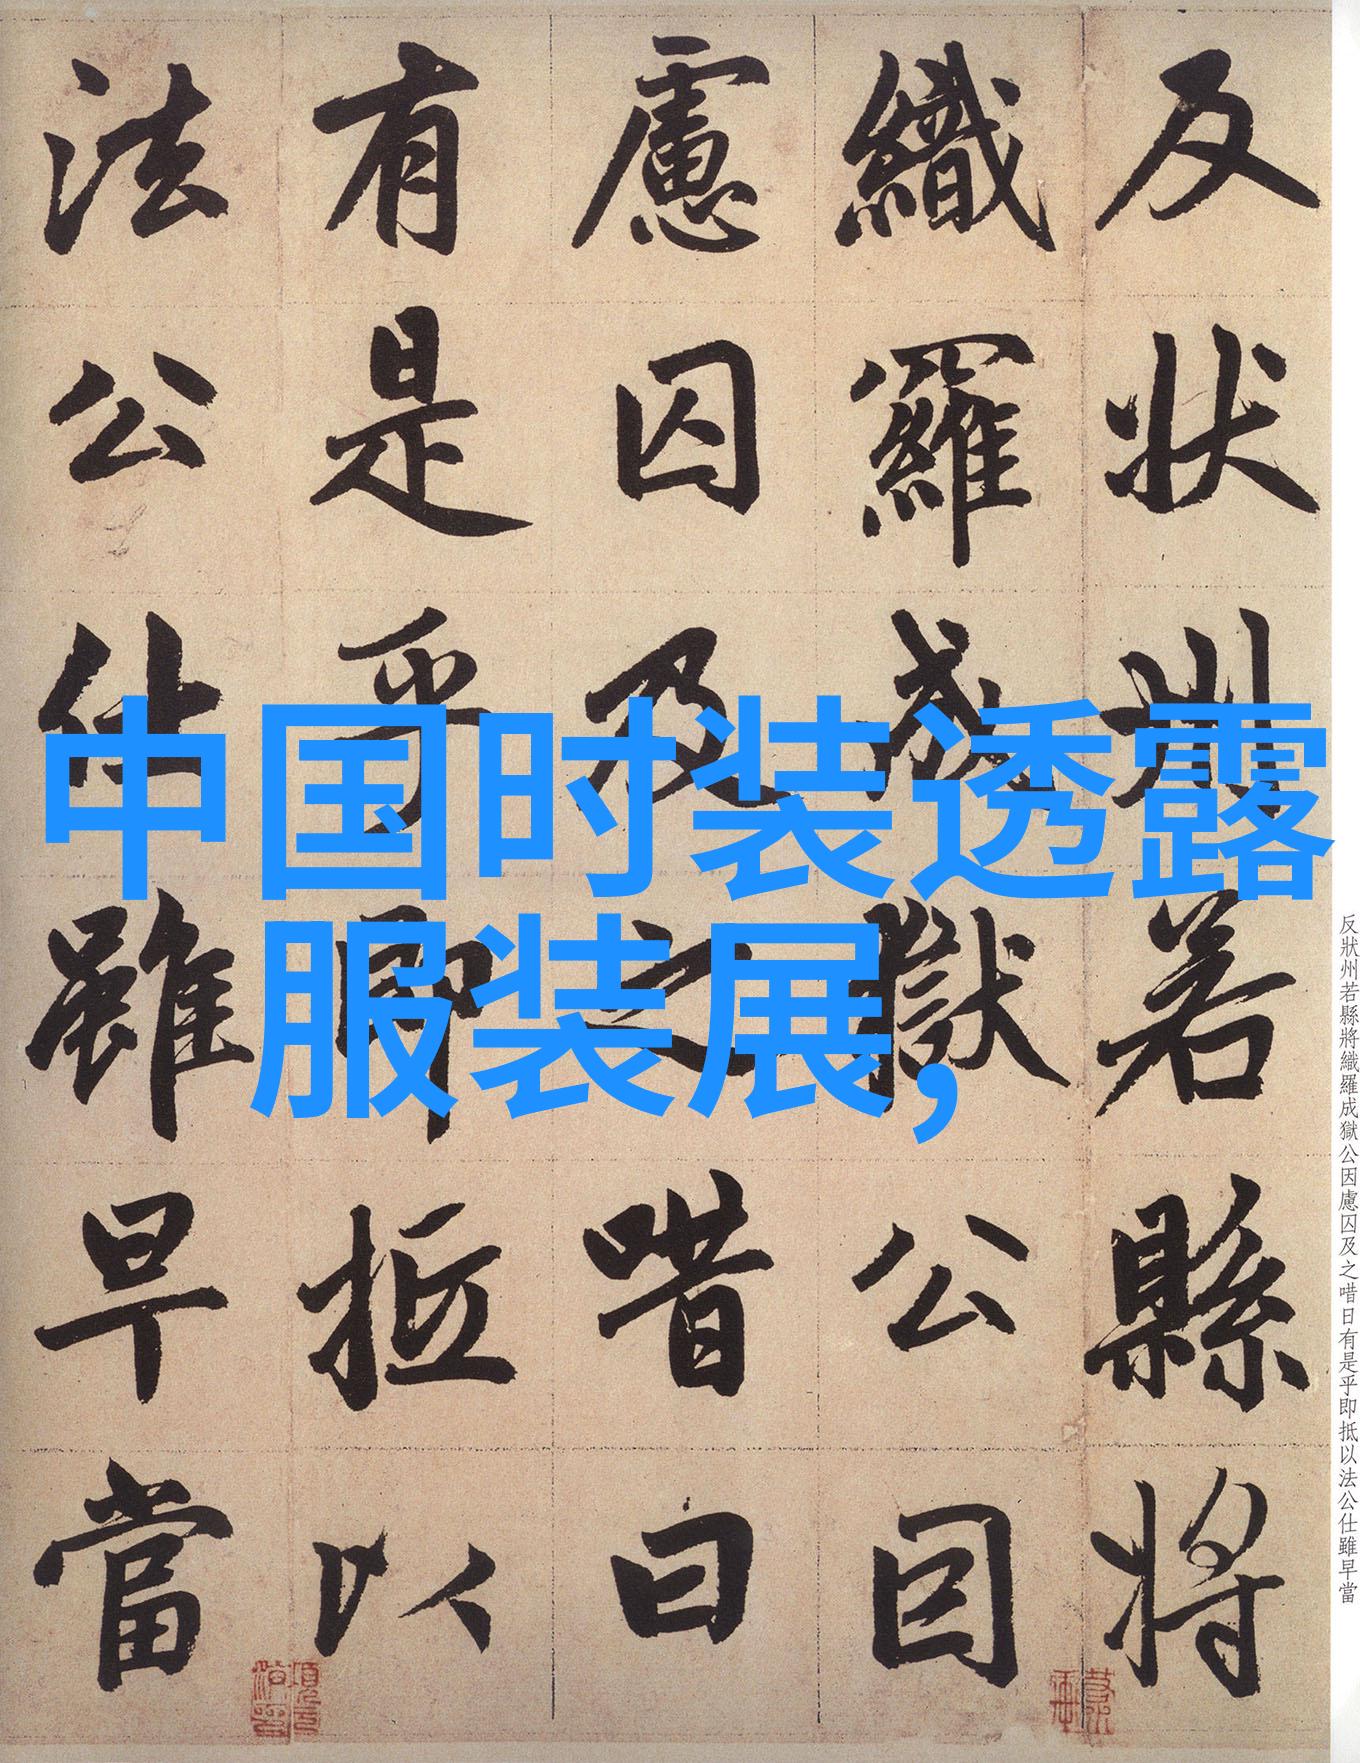 中国时装透露
服装展,
反状州若縣將
織羅成獄公因
慮囚及之唶曰
有是乎即抵以
法公仕雖早當
反狀州若縣將織羅成獄公因慮囚及之唶日有是乎即抵以法公仕雖早當